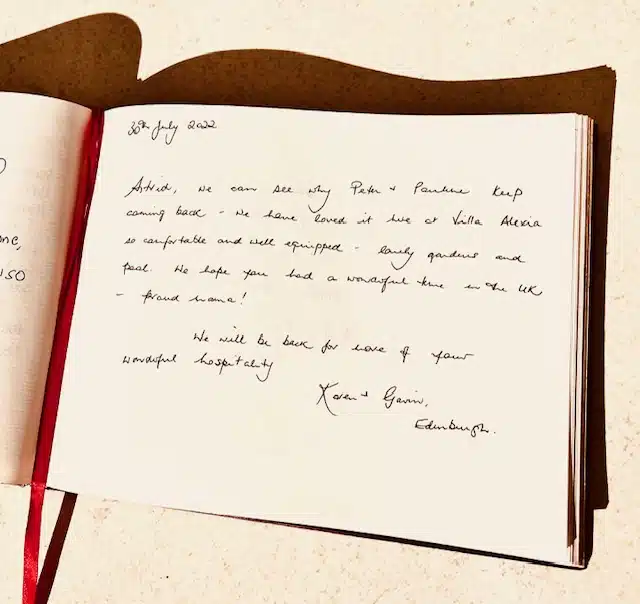 me,
so
30th July 2022
Astrid, we can see why Peter + Pauline keep
coming back - we have loved it here at Villa Alexia
so comfortable and well equipped - lovely gardens and
pool. We hope you had a wonderful time in the UK
- proud mama!
We will be back for more of your
wonderful hospitality
Karen + Gavin,
Edinburgh.